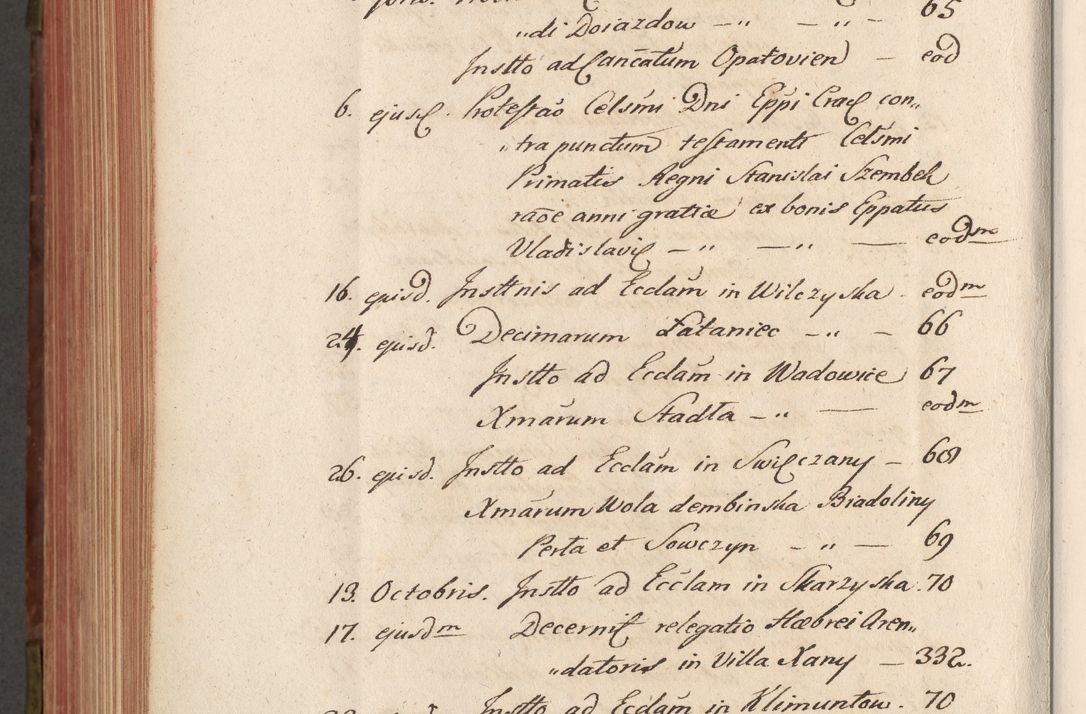 „di Doiazdow – „ – „ – 65
Jnstto ad Cancãtum Opatovien – eod
6. ejusd. Protestao Celsmi Dni Eppi Crac con„
„tra punctum testamenti Celsmi
Primatis Regni Stanislai Szembek
raõe anni gratiæ ex bonis Eppatus
Vladislavi – „ – „ – eodm
16. ejusd. Jnsttnis ad Ecclam in Wilczyska . eodm
24. ejusd. Decimarum Łataniec – „ – 66
Jnstto ad Ecclam in Wadowice 67
Xmarum Stadła – „ – eodm
26. ejusd. Jnstto ad Ecclam in Swięczany – 68
Xmarum Wola dembinska Biadoliny
Perła et Sowczyn – „ – 69
13. Octobris. Jnstto ad Ecclam in Skarzyska . 70
17. ejusdm Decernit relegatio Hæbrei Aren„
„datoris in Villa Xany – 332.
Jnstto ad Ecclam in Klimuntow . 70